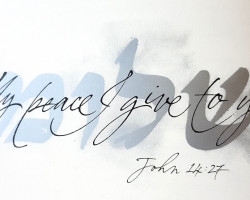 שלום
My peace I give to y
John 14:27